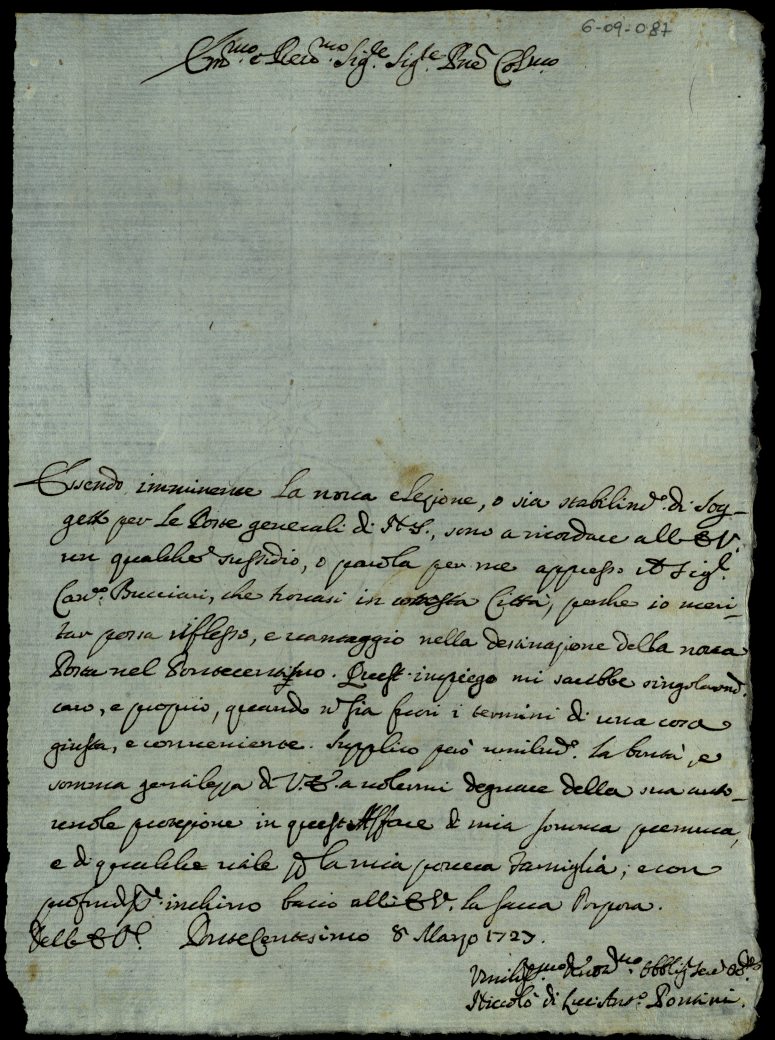 6-09-087
Em.mo e Rev.mo Sig.re Sig.re Pne Col.mo
Essendo imminente la nova elezione, o sia stabilim.to di Sog-
getti per le Poste generali di N.S., sono a ricordare all'E.V.
un qualche sussidio, o parola per me appresso il Sig.r
Cav.e Bucciari, che trovasi in cotesta Città, perche io meri-
tar possa riflesso, e vantaggio nella destinazione della nova
Posta nel Pontecentesimo. Quest'impiego mi sarebbe singolarm.te
caro, e proprio, quando n sia fuori i termini di una cosa
giusta, e conveniente. Supplico però umilm.te la bontà, e
somma gentilezza di V.E. a volermi degnare della sua auto-
revole protezione in quest'Affare di mia somma premura,
e di qualche utile p la mia povera Famiglia; e con
profondiss.o inchino bacio all'E.V. la sacra Porpora.
Dell'E.V. PonteCentesimo 8 Marzo 1727.
Umiliss.mo Devot.mo Obblig. Ser.
Niccolò di Luc'Ant.o Pontini.